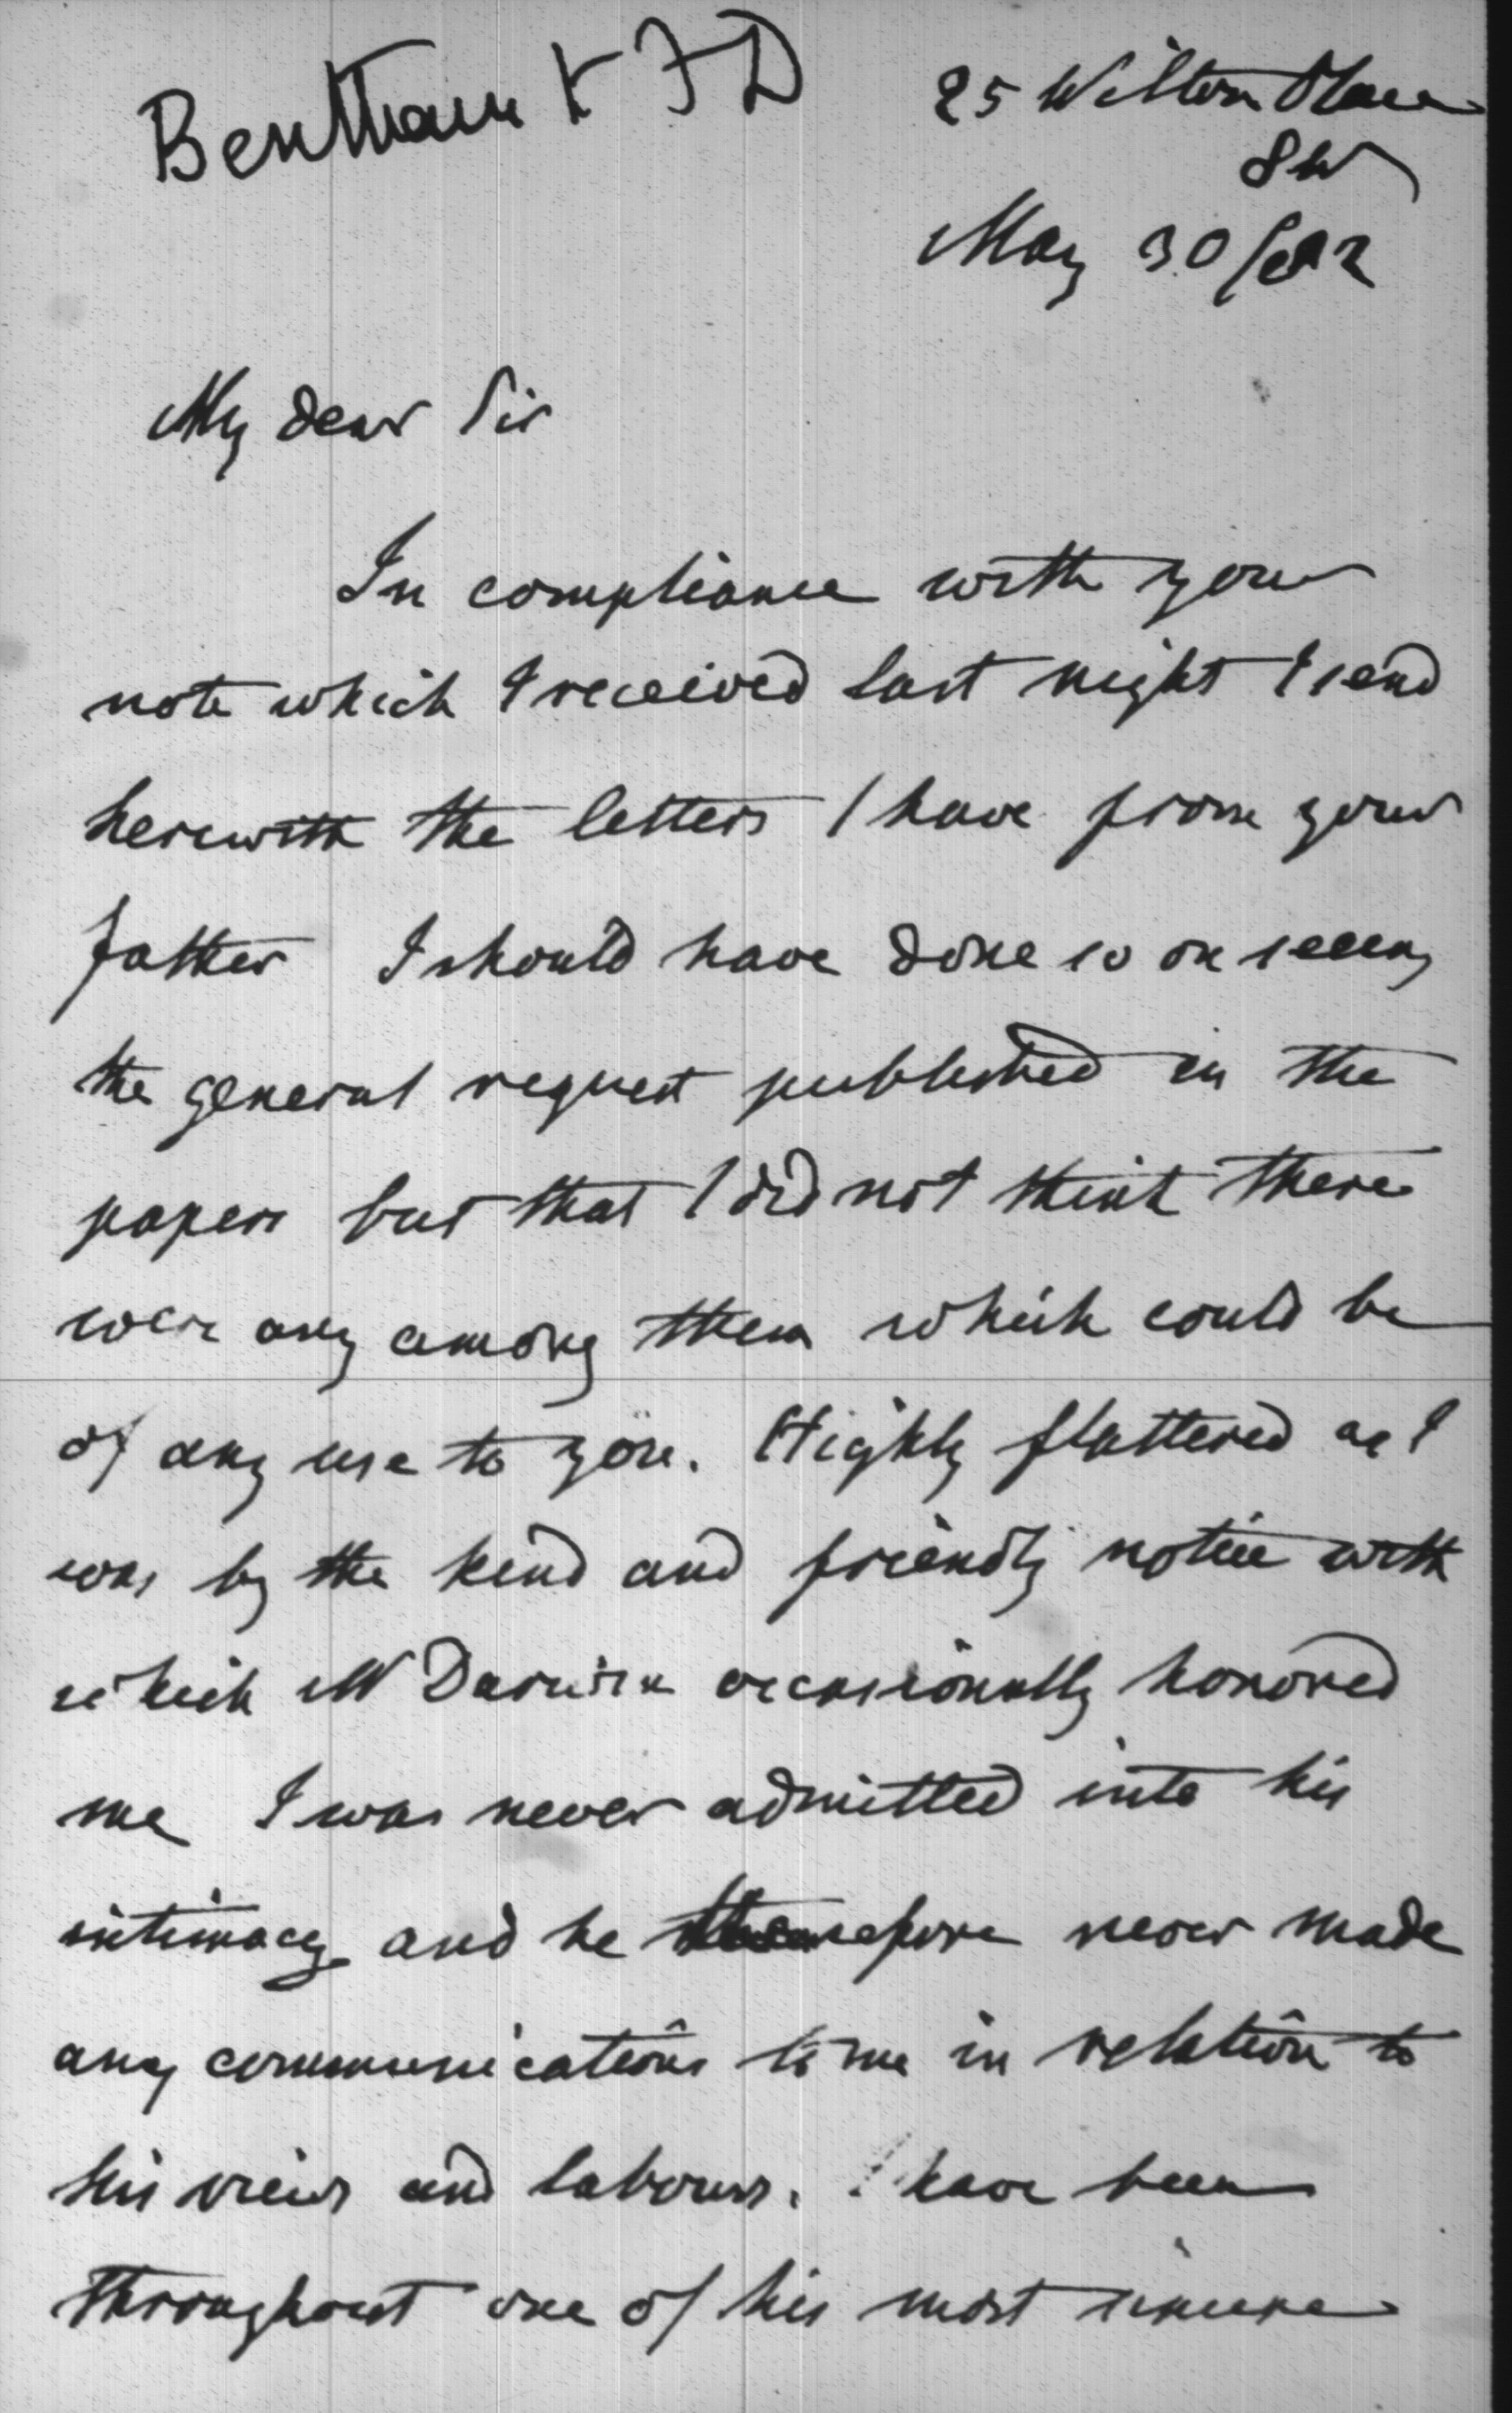 Bentham to FD
25 Wilton Place
SW
May 30/82
My dear Sir
In compliance with your
note which I received last night I send
herewith the letters I have from your
father I should have done so on seeing
the general request published in the
papers but that I did not think there
were any among them which could be
of any use to you. Highly flattered as I
was by the kind and friendly notice with
which Mr Darwin occasionally honored
me I was never admitted into his
intimacy and he therefore never made
any communications to me in relation to
his views and labours. I have been
throughout one of his most sincere